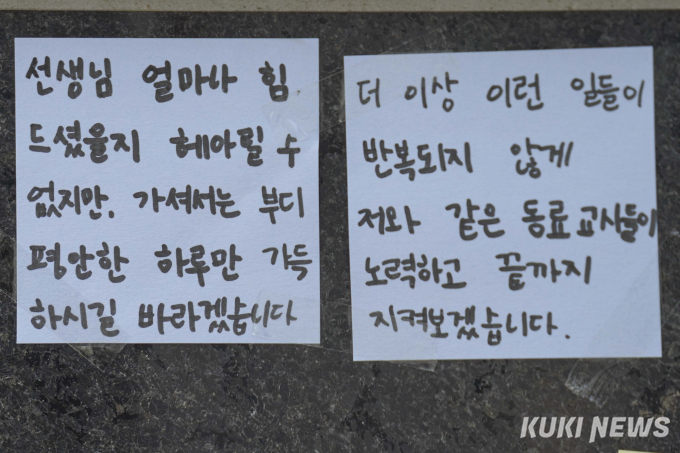 선생님 얼마나 힘
드셨을지 헤아릴 수
없지만, 가셔서는 부디
평안한 하루만 가득
하시길 바라겠습니다
더 이상 이런 일들이
반복되지 않게
저와 같은 동료 교사들이
노력하고 끝까지
지켜보겠습니다.
KUKI NEWS